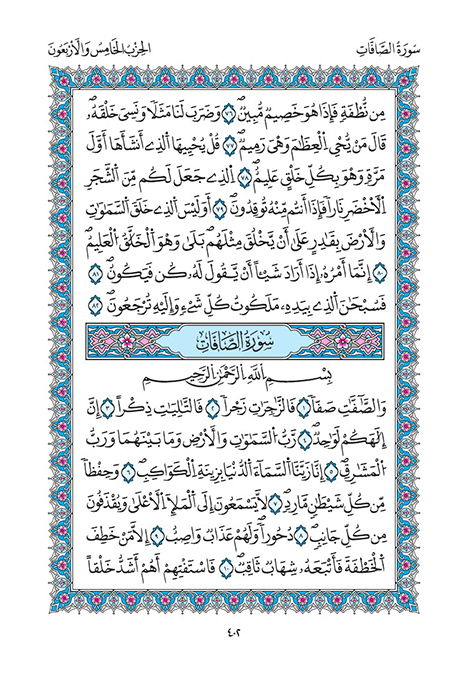 سورة الصافات
الحزب الخامس والأربعون
مِن نُّطْفَةٍ فَإِذَا هُوَ خَصِيمٌ مُّبِينٌ ٧٦ وَضَرَبَ لَنَا مَثَلًا وَنَسِيَ خَلْقَهُۥ
قَالَ مَنْ يُّحْيِ اِ۬لْعِظَٰمَ وَهْيَ رَمِيمٌ ٧٧ قُلْ يُحْيِيهَا اَ۬لذِے أَنشَأَهَا أَوَّلَ
مَرَّةٍ وَهْوَ بِكُلِّ خَلْقٍ عَلِيمٌ ٧٨ اِ۬لذِے جَعَلَ لَكُم مِّنَ اَ۬لشَّجَرِ
اِ۬لَاخْضَرِ نَارًا فَإِذَا أَنتُم مِّنْهُ تُوقِدُونَ ٧٩ أَوَلَيْسَ اَ۬لذِے خَلَقَ اَ۬لسَّمَٰوَٰتِ
وَالَارْضَ بِقَٰدِرٍ عَلَىٰ أَنْ يَّخْلُقَ مِثْلَهُم بَلَىٰ وَهْوَ اَ۬لْخَلَّٰقُ اُ۬لْعَلِيمُ
٨٠ إِنَّمَا أَمْرُهُۥ إِذَا أَرَادَ شَيْـًٔا أَنْ يَّقُولَ لَهُۥ كُن فَيَكُونُ ٨١
فَسُبْحَٰنَ اَ۬لذِے بِيَدِهِۦ مَلَكُوتُ كُلِّ شَےْءٍ وَإِلَيْهِ تُرْجَعُونَ ٨٢
سورة الصافات
بِسْمِ اِ۬للَّهِ اِ۬لرَّحْمَٰنِ اِ۬لرَّحِيمِ
وَالصَّٰٓفَّٰتِ صَفّاً ١ فَالزَّٰجِرَٰتِ زَجْراً ٢ فَالتَّٰلِيَٰتِ ذِكْراً ٣ إِنَّ
إِلَٰهَكُمْ لَوَٰحِدٌ ٤ رَّبُّ اُ۬لسَّمَٰوَٰتِ وَالَارْضِ وَمَا بَيْنَهُمَا وَرَبُّ
اُ۬لْمَشَٰرِقِ ٥ إِنَّا زَيَّنَّا اَ۬لسَّمَآءَ اَ۬لدُّنْيَا بِزِينَةِ اِ۬لْكَوَاكِبِ ٦ وَحِفْظاً
مِّن كُلِّ شَيْطَٰنٍ مَّارِدٍ ٧ لَّا يَسْمَعُونَ إِلَى اَ۬لْمَلَإِ اِ۬لَاعْلَىٰ وَيُقْذَفُونَ
مِن كُلِّ جَانِبٍ ٨ دُحُوراً وَلَهُمْ عَذَابٌ وَاصِبٌ ٩ اِلَّا مَنْ خَطِفَ
اَ۬لْخَطْفَةَ فَأَتْبَعَهُۥ شِهَابٌ ثَاقِبٌ ١٠ فَاسْتَفْتِهِمْ أَهُمْ أَشَدُّ خَلْقاً
٤٠٢